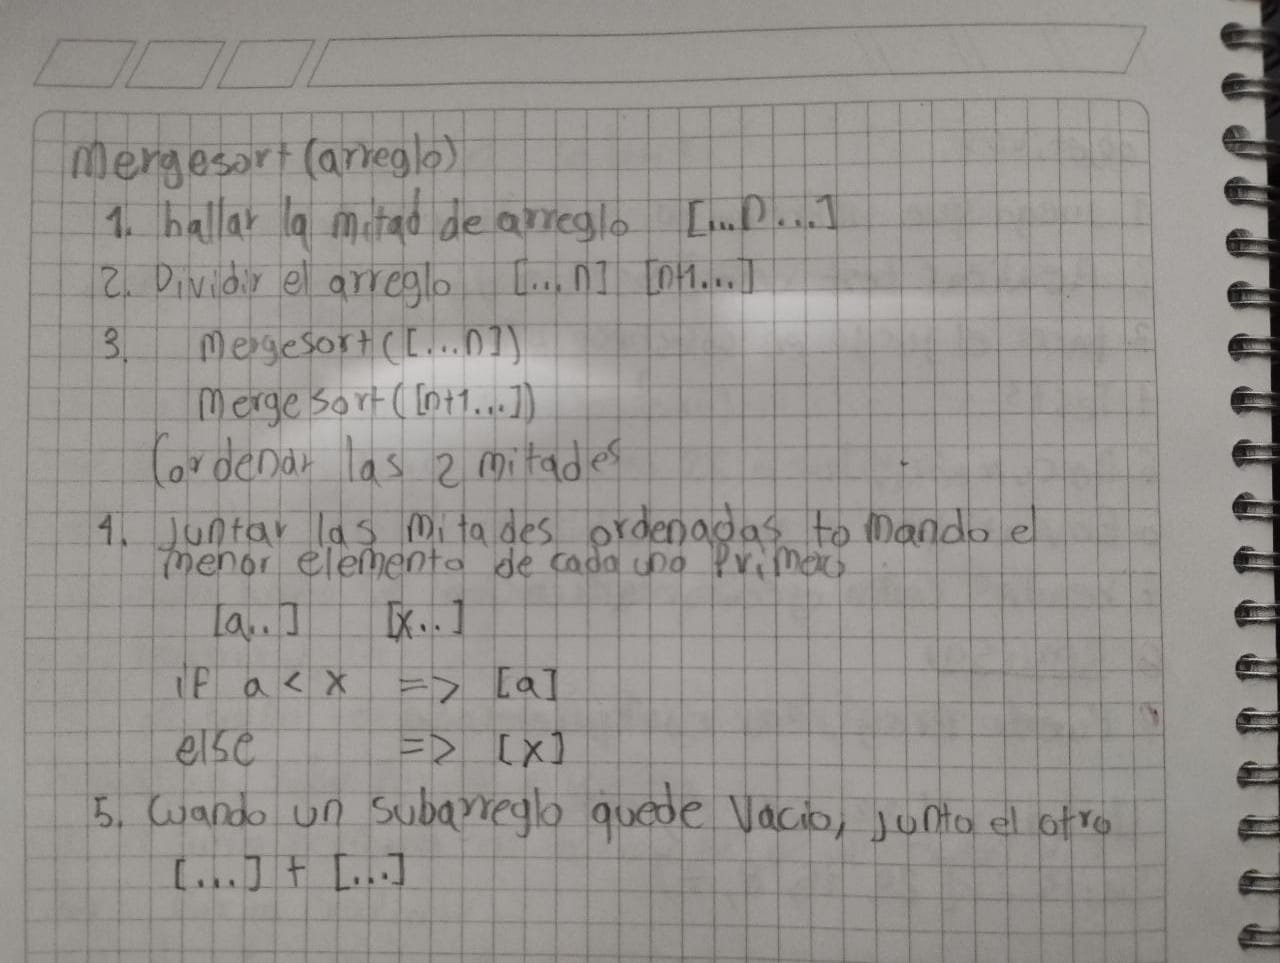 mergesort (arreglo)
1. hallar la mitad de arreglo [...n...]
2. Dividir el arreglo [...n] [n+1...]
3. mergesort ([...n])
mergesort ([n+1...])
(ordenar las 2 mitades
4. Juntar las mitades ordenadas tomando el
menor elemento de cada uno primero
[a..] [x..]
if a < x => [a]
else => [x]
5. Cuando un subarreglo quede vacio, junto el otro
[...] + [...]